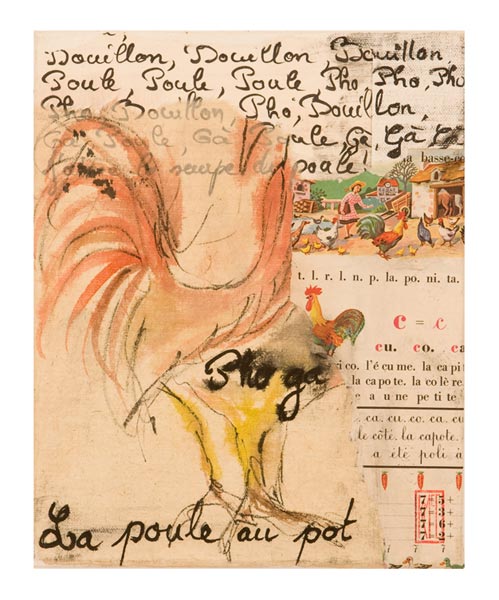 Bouillon, Bouillon, Bouillon,
Poule, Poule, Poule Pho, Pho, Pho
Pho, Bouillon, Pho, Bouillon,
Ga, Poule, Gà Poule, Ga, Gà
soupe poule,
la basse-co
t. l. r. l. n. p. la. po. ni. ta.
c = c
cu. co. ca
co. l'é cu me. la ca pi
la ca po te. la co lè re
e a u ne pe ti te
ca. cu. co. ca. cu
le côté. la capote.
a été poli à
Pho ga
7 + 5 +
7 = 3 +
7 = 6 +
7 = 2 +
7 7 7
La poule au pot